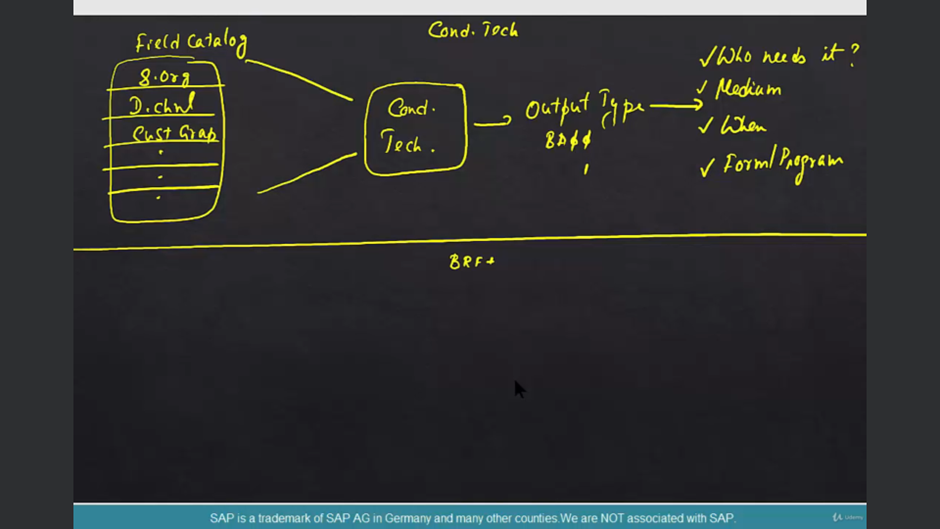 Cond. Tech
Field Catalog
S.Org
D.chnl
Cust Grap
Cond.
Tech.
Output Type
BAØØ
✓Who needs it?
✓ Medium
✓ When
✓ Form/Program
BRF+
SAP is a trademark of SAP AG in Germany and many other counties.We are NOT associated with SAP.
Udemy